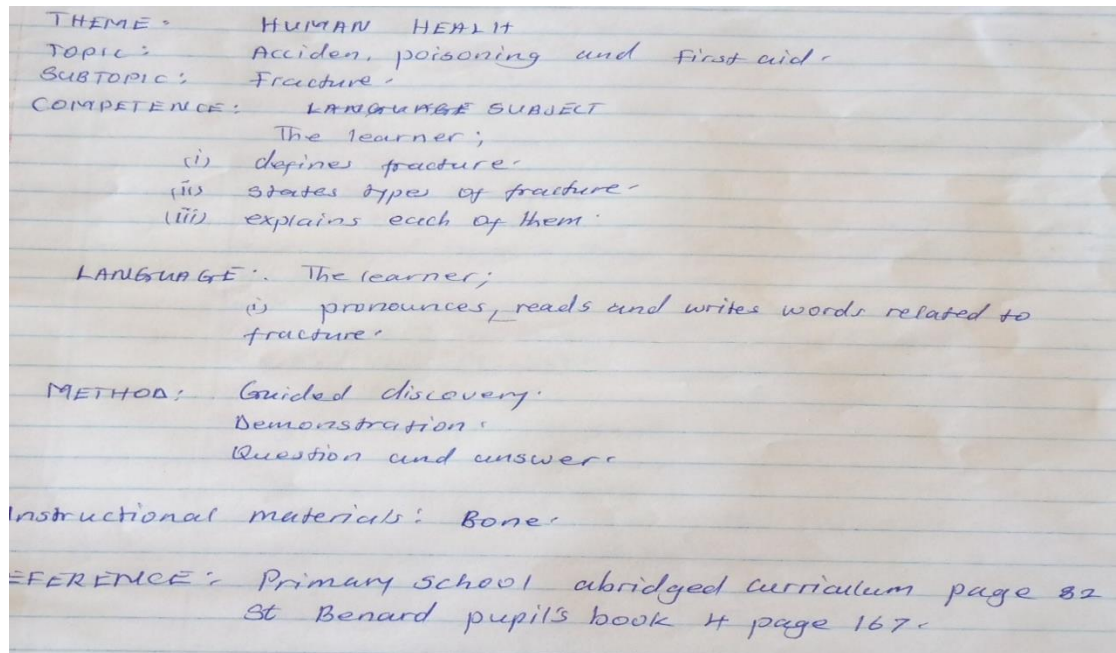 THEME: HUMAN HEALH
Topic: Acciden, poisoning and first aid.
SUBTOPIC: Fracture.
COMPETENCE: LANGUAGE SUBJECT
The learner;
(i) defines fracture.
(ii) states types of fracture.
(iii) explains each of them.
LANGUAGE: The learner;
(i) pronounces, reads and writes words related to
fracture.
METHOD: Guided discovery.
Demonstration.
Question and answer.
Instructional materials: Bone.
EFERENCE: Primary school abridged curriculum page 82
St Benard pupil's book 4 page 167.